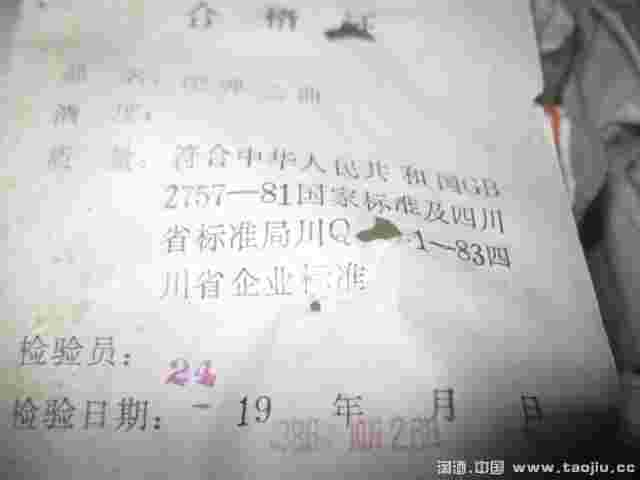 合格证
品名：
酒度：
质量：符合中华人民共和国GB
2757—81国家标准及四川
省标准局川Q 1—83四
川省企业标准
检验员：24
检验日期： 19 年 月 日
淘酒.中国 www.taojiu.cc